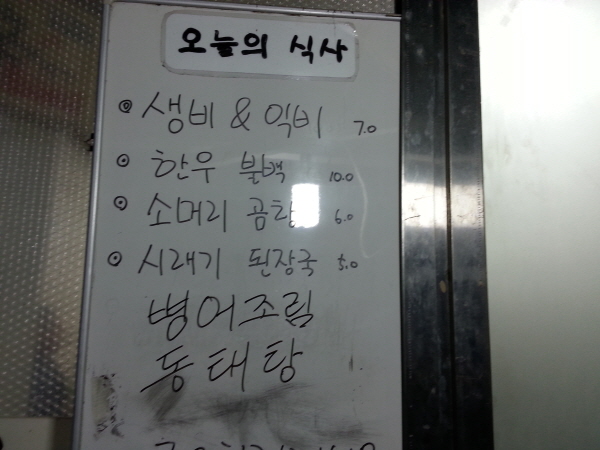 오늘의 식사
생비 & 익비 7.0
한우 불백 10.0
소머리 곰탕 6.0
시래기 된장국 5.0
병어조림
동태탕